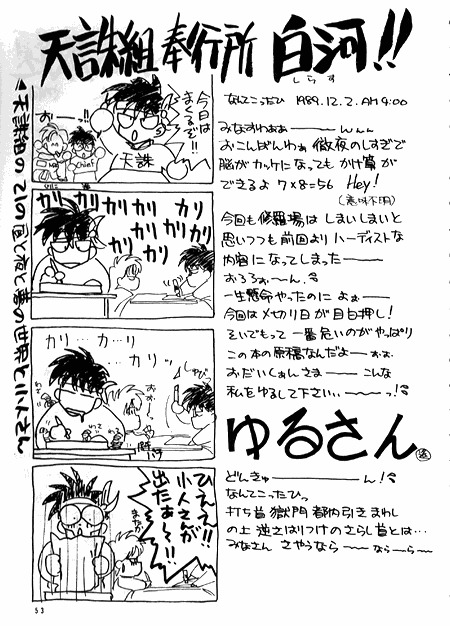 天誅組 奉行所 白河!!
しらす
今日は
まくるぞ!!
おーっ!!
天誅
Chief
カリ カリ
カリ カリ
カリ カリ
カリ
カリ…カリ…
カリ…カリッ
ひええ!!
小人さんが
出たぁ〜!!
なんてこったひ 1989.12.2.AM9:00
みなすわぁぁ――んんん
おこんばんわぁ 徹夜のしすぎで
脳がカッケになっても かけ算が
できるよ 7×8=56 Hey!
(意味不明)
今回も修羅場は しまいしまいと
思いつつも前回より ハーディストな
内容になってしまった――
おろろぉ〜ん。
一生懸命やったのに よぉ――
今回はメカリ日が目白押し!
そいでもって 一番危いのがやっぱり
この本の原稿なんだよ―ぉぉ.
おだいしぁんさま―― こんな
私をゆるして下さい、――っ!
ゆるさん
どんきゅ――――ん!
なんてこったひっ
打ち首 獄門 都内引きまわし
の上 逆さはりつけのさらし首とは…
みなさん さやうなら ――なら―ら―
53